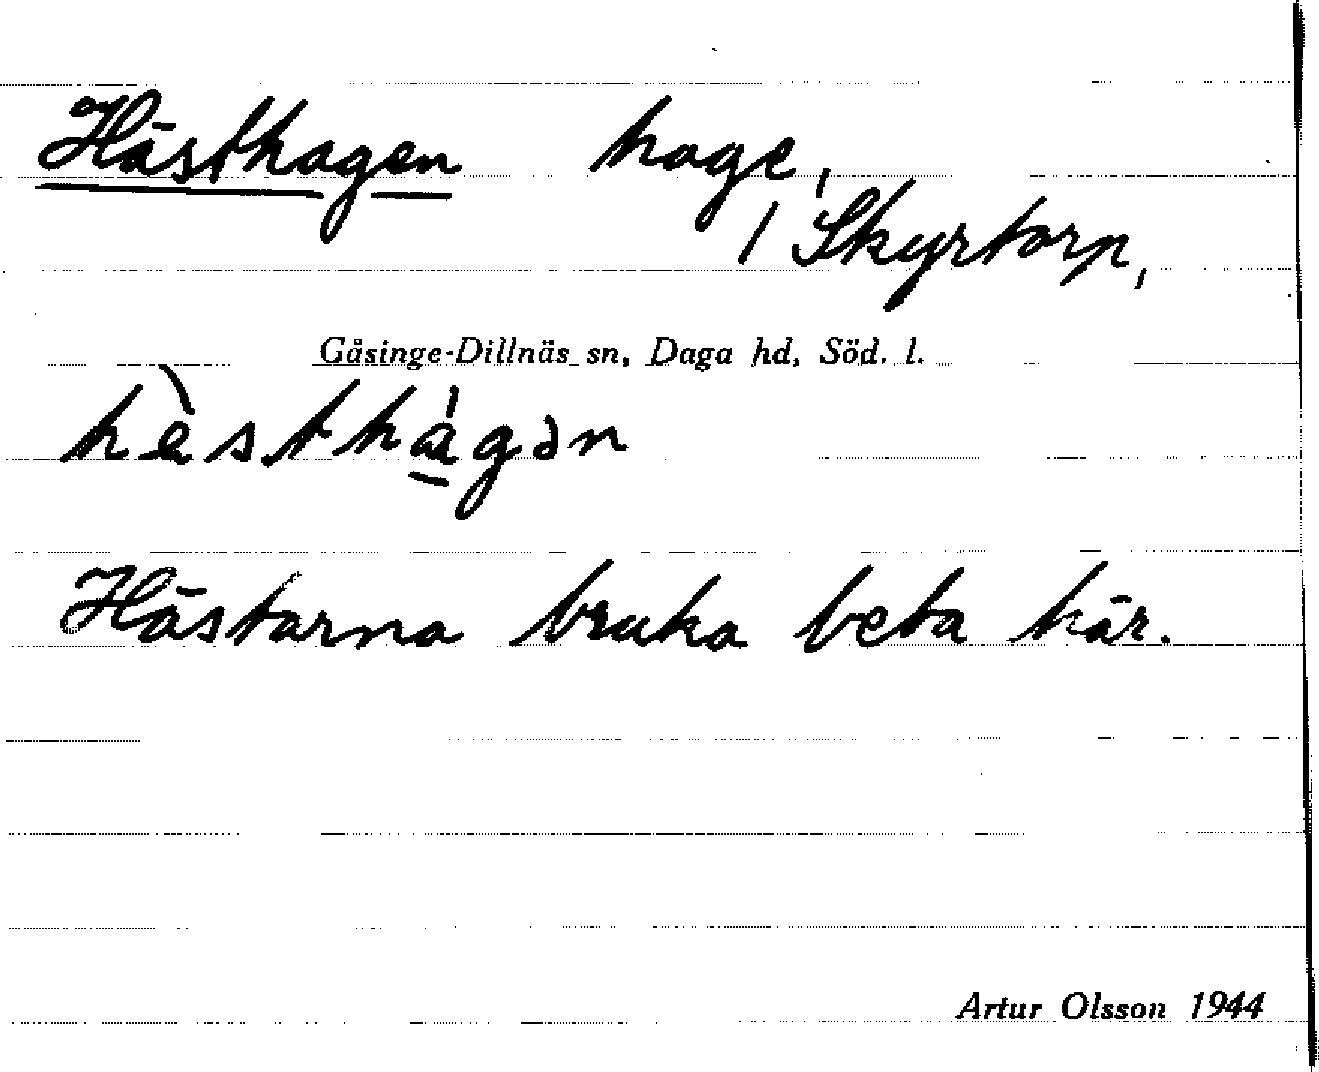 Hästhagen hage,
/ Skyrtorp,
Gåsinge-Dillnäs sn, Daga hd, Söd. l.
hèsthágən
Hästarna bruka beta här.
Artur Olsson 1944